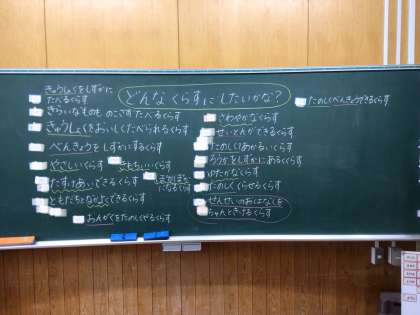 どんなくらすにしたいかな?
きゅうしょくをしずかに
たべるくらす
きらいなものも のこさずたべるくらす
きゅうしょくをおいしくたべられるくらす
べんきょうをしずかにするくらす
やさしいくらす
きもちいいくらす
たすけあいできるくらす
になるくらす
ともだちとなかよくできるくらす
おんがくをたのしくやるくらす
さわやかなくらす
せいとんができるくらす
たのしい!あかるいくらす
ろうかをしずかにあるくくらす
ゆたかなくらす
たのしくくらせるくらす
せんせいのおはなしを
ちゃんときけるくらす
たのしくべんきょうできるくらす